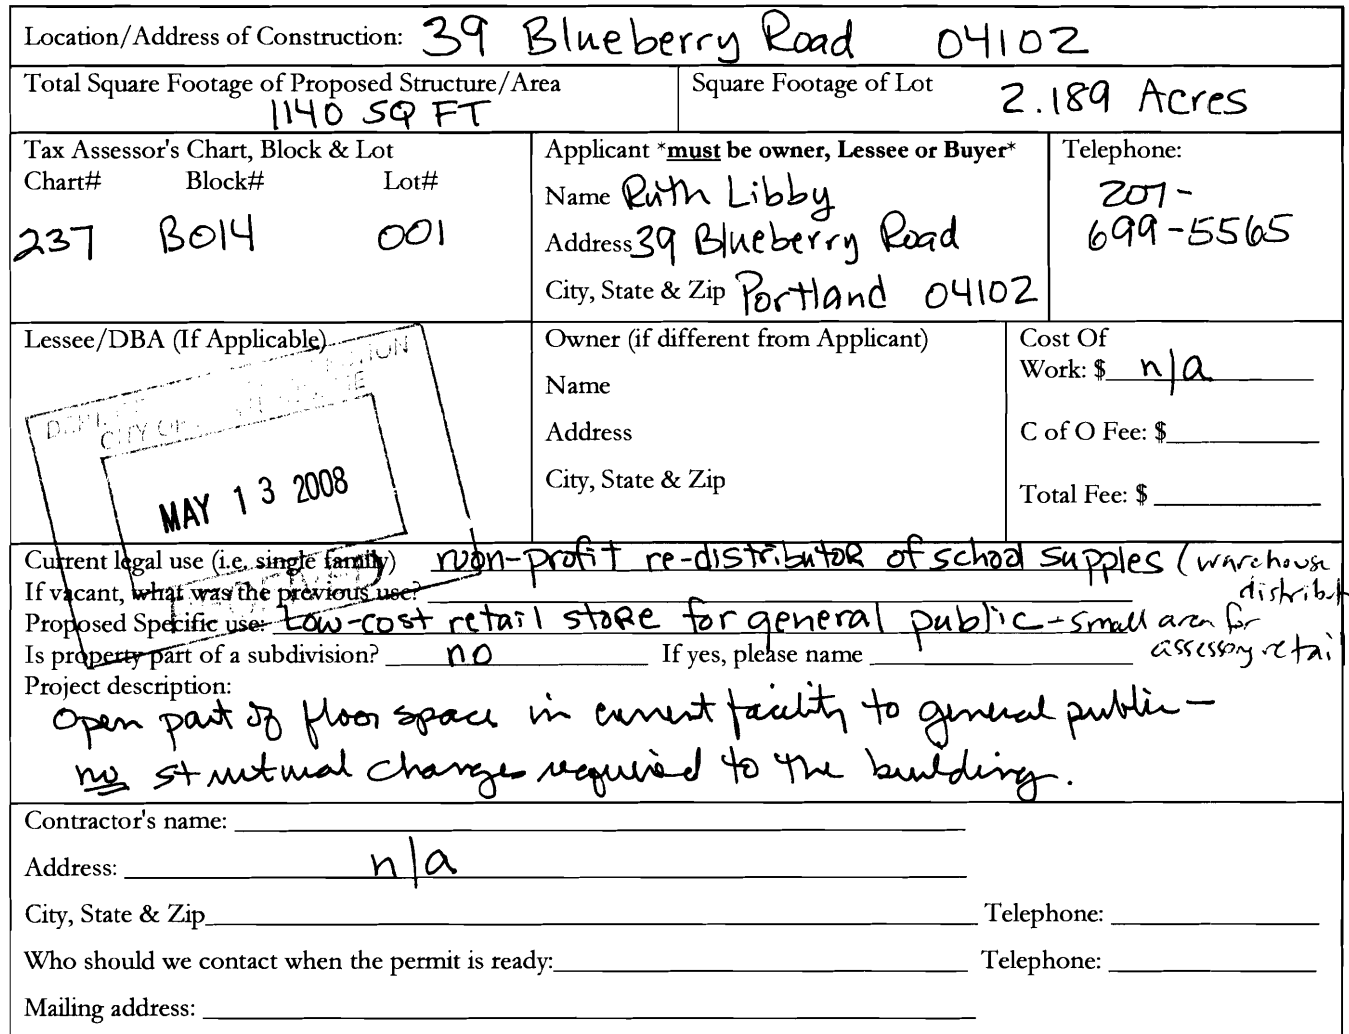 Location/Address of Construction: 39 Blueberry Road 04102
Total Square Footage of Proposed Structure/Area
1140 SQ FT
Square Footage of Lot
2.189 Acres
Tax Assessor's Chart, Block & Lot
Chart# Block# Lot#
237 B014 001
Applicant *must be owner, Lessee or Buyer*
Name Ruth Libby
Address 39 Blueberry Road
City, State & Zip Portland 04102
Telephone:
207-
699-5565
Lessee/DBA (If Applicable)
CITY OF
MAY 13 2008
Owner (if different from Applicant)
Name
Address
City, State & Zip
Cost Of
Work: $ n/a
C of O Fee: $
Total Fee: $
Current legal use (i.e. single family) non-profit re-distributor of school supples (warehouse
distribut
If vacant, what was the previous use?
Proposed Specific use: Low-cost retail store for general public - small area for
assessory retail
Is property part of a subdivision? no If yes, please name
Project description:
Open part of floor space in current facility to general public -
no structural changes required to the building.
Contractor's name:
Address: n/a
City, State & Zip Telephone:
Who should we contact when the permit is ready: Telephone:
Mailing address: